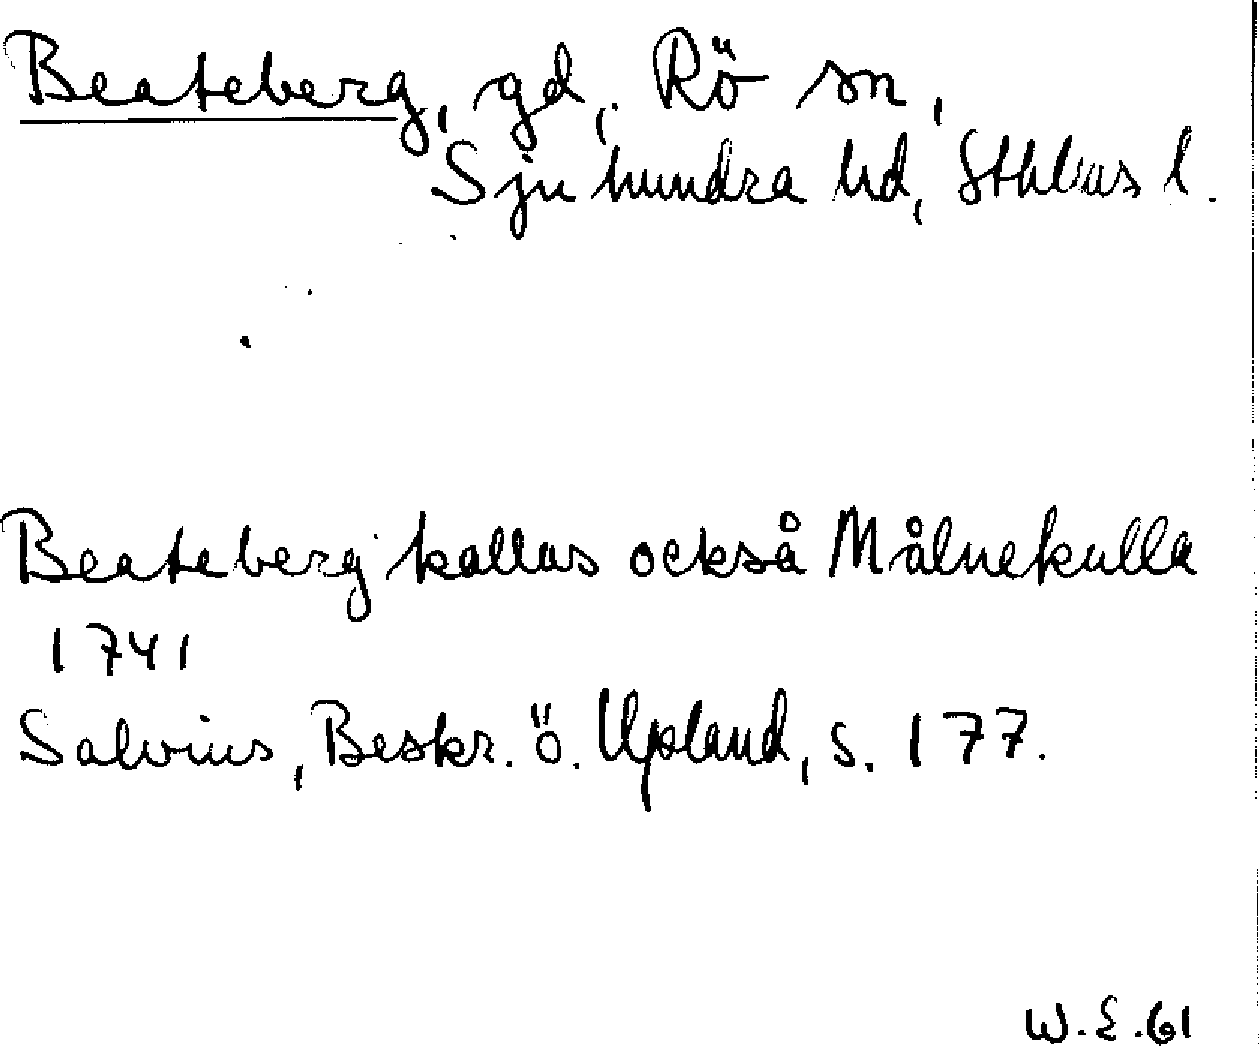 Beateberg, gd, Rö sn,
Sjuhundra hd, Sthlms l.
Beateberg kallas också Målnekulla
1741
Salvius, Beskr. ö. Upland, s. 177.
W.E.61